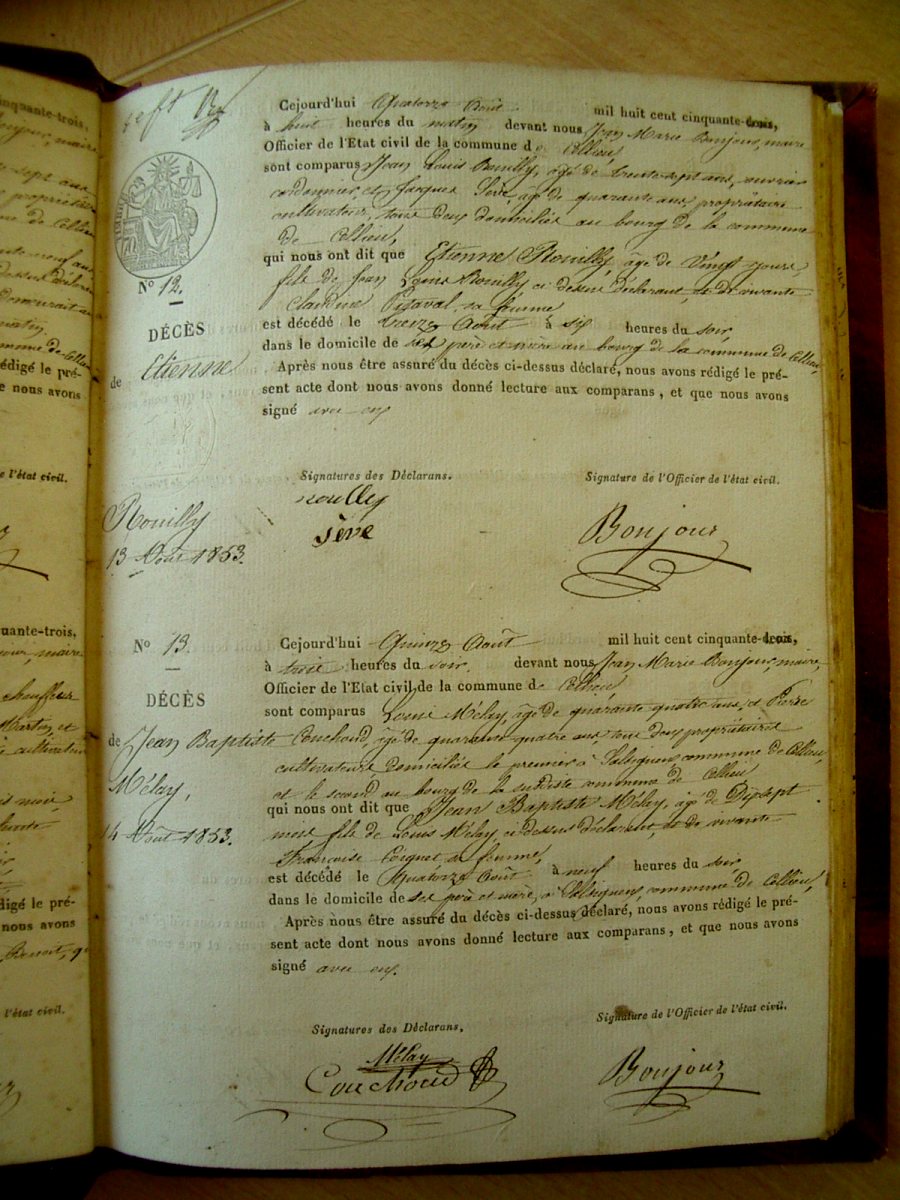 Cejourd'hui Quatorze Août mil huit cent cinquante-trois,
à huit heures du matin devant nous Jean Marie Bonjour, maire
Officier de l'Etat civil de la commune de Cellieu
sont comparus Jean Louis Rouilly, âgé de trente-sept ans, ouvrier
cordonnier, et Jacques Sève, âgé de quarante ans, propriétaire
cultivateur, tous deux domiciliés au bourg de la commune
de Cellieu,
qui nous ont dit que Etienne Rouilly, âgé de vingt jours,
fils de Jean Louis Rouilly ci dessus déclarant, et de vivante
Claudine Pitaval, sa femme
est décédé le treize Août à six heures du soir,
dans le domicile de ses père et mère au bourg de la commune de Cellieu,
Après nous être assuré du décès ci-dessus déclaré, nous avons rédigé le pré-
sent acte dont nous avons donné lecture aux comparans, et que nous avons
signé avec eux
No 12.
DÉCÈS
de Etienne
Rouilly
13 Août 1853.
Signatures des Déclarans.
rouilly
sève
Signature de l'Officier de l'état civil.
Bonjour
No 13
DÉCÈS
de Jean Baptiste
Mélay,
14 Août 1853.
Cejourd'hui Quinze Août mil huit cent cinquante-trois,
à trois heures du soir, devant nous Jean Marie Bonjour, maire,
Officier de l'Etat civil de la commune de Cellieu
sont comparus Louis Mélay, âgé de quarante quatre ans, et Pierre
Couchoud, âgé de quarante quatre ans, tous deux propriétaires
cultivateurs, domiciliés le premier à Salcigneux, commune de Cellieu,
et le second au bourg de la susdite commune de Cellieu
qui nous ont dit que Jean Baptiste Mélay, âgé de Dix sept
mois fils de Louis Mélay ci dessus déclarant, et de vivante
Françoise Coignet sa femme,
est décédé le Quatorze Août à neuf heures du soir,
dans le domicile de ses père et mère, à Salcigneux, commune de Cellieu,
Après nous être assuré du décès ci-dessus déclaré, nous avons rédigé le pré-
sent acte dont nous avons donné lecture aux comparans, et que nous avons
signé avec eux.
Signatures des Déclarans,
Mélay
Couchoud
Signature de l'Officier de l'état civil.
Bonjour